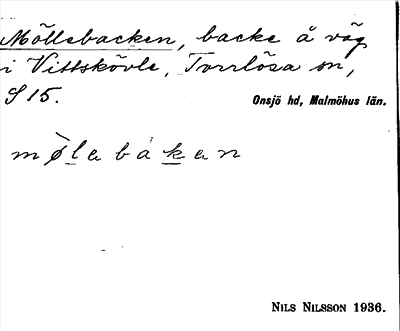 Möllebacken, backe å väg
i Vittskövle, Torrlösa sn,
S 15.
Onsjö hd, Malmöhus län.
mø̀labákan
NILS NILSSON 1936.